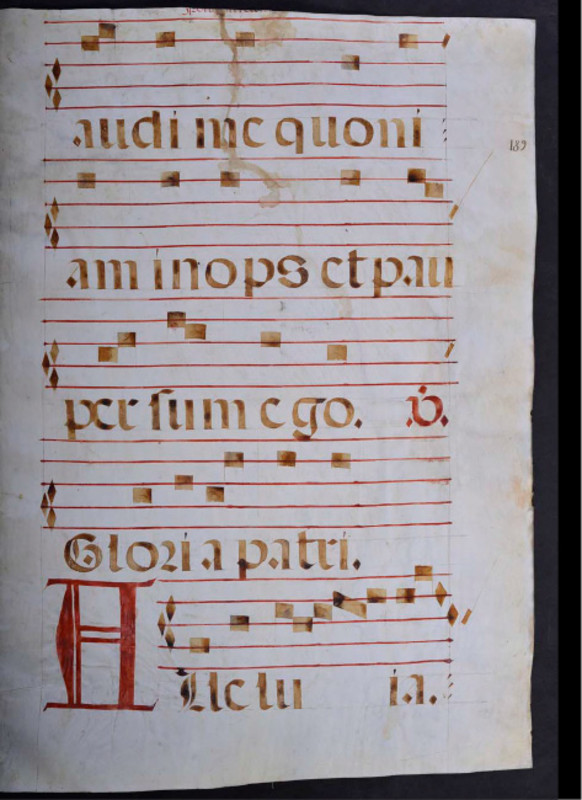 audi me quoni
189
am inops et pau
per sum ego. V.
Gloria patri.
Alleluia.